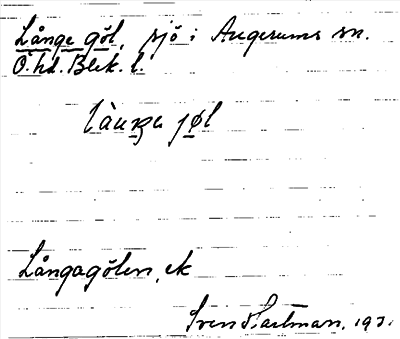 Långe göl, sjö i Augerums sn.
Ö. hd. Blek. l.
Långagölen, ek
Sven Hartman, 193.